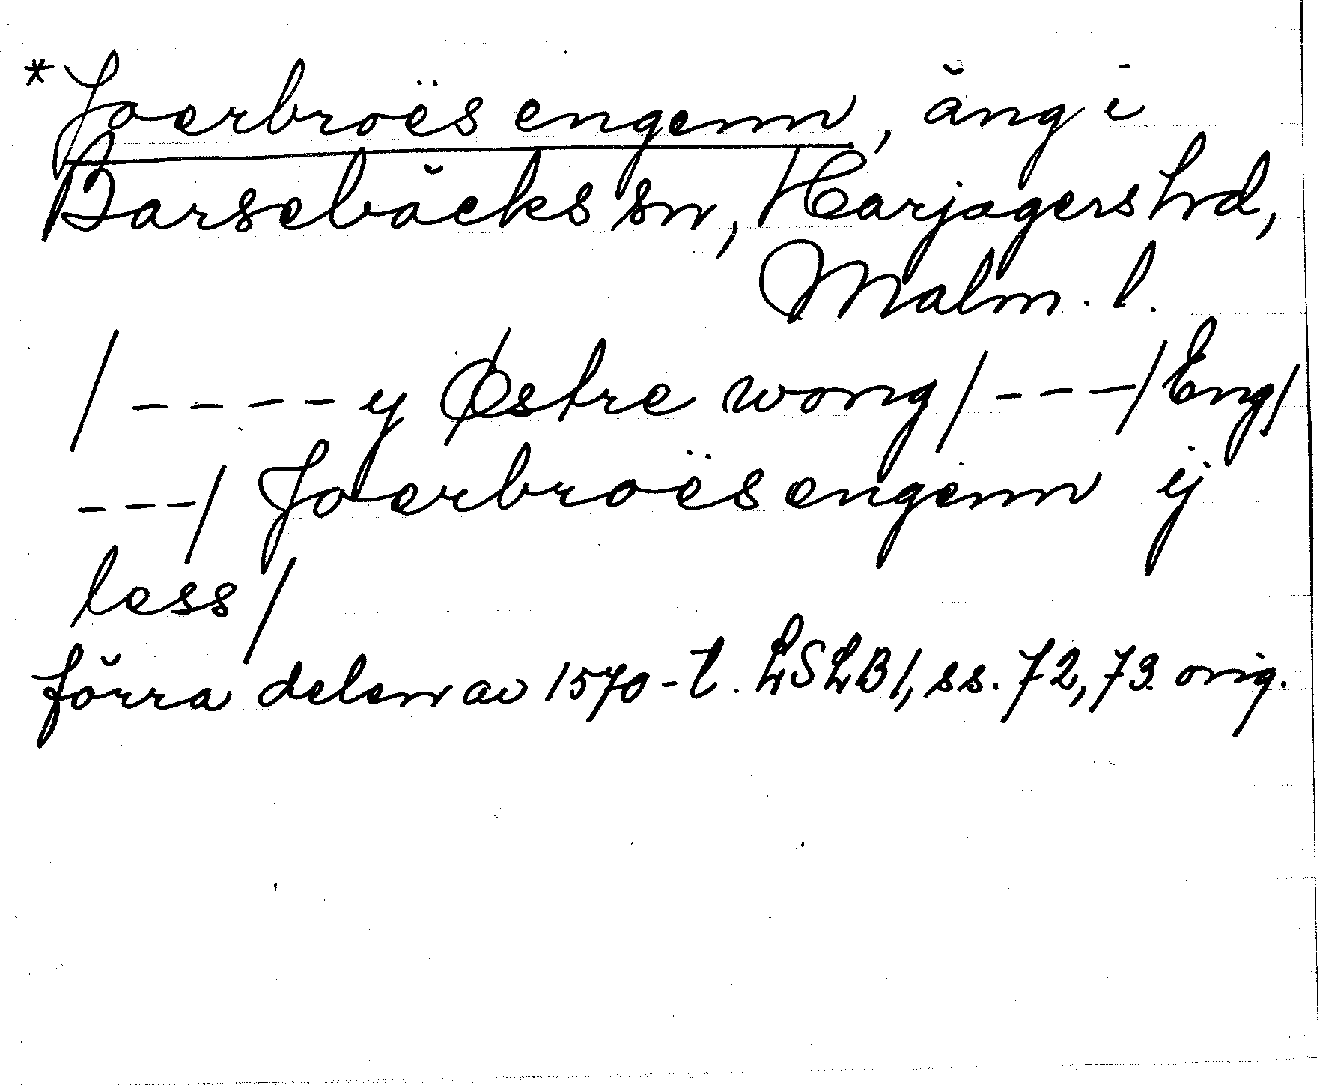 *Joerbroës engenn, äng i
Barsebäcks sn, Harjagers hd,
Malm. l.
/ - - - - y Østre wong / - - - / Eng /
- - - / Joerbroës engenn ij
less /
förra delen av 1570-t. LSLB 1, ss. 72, 73 orig.